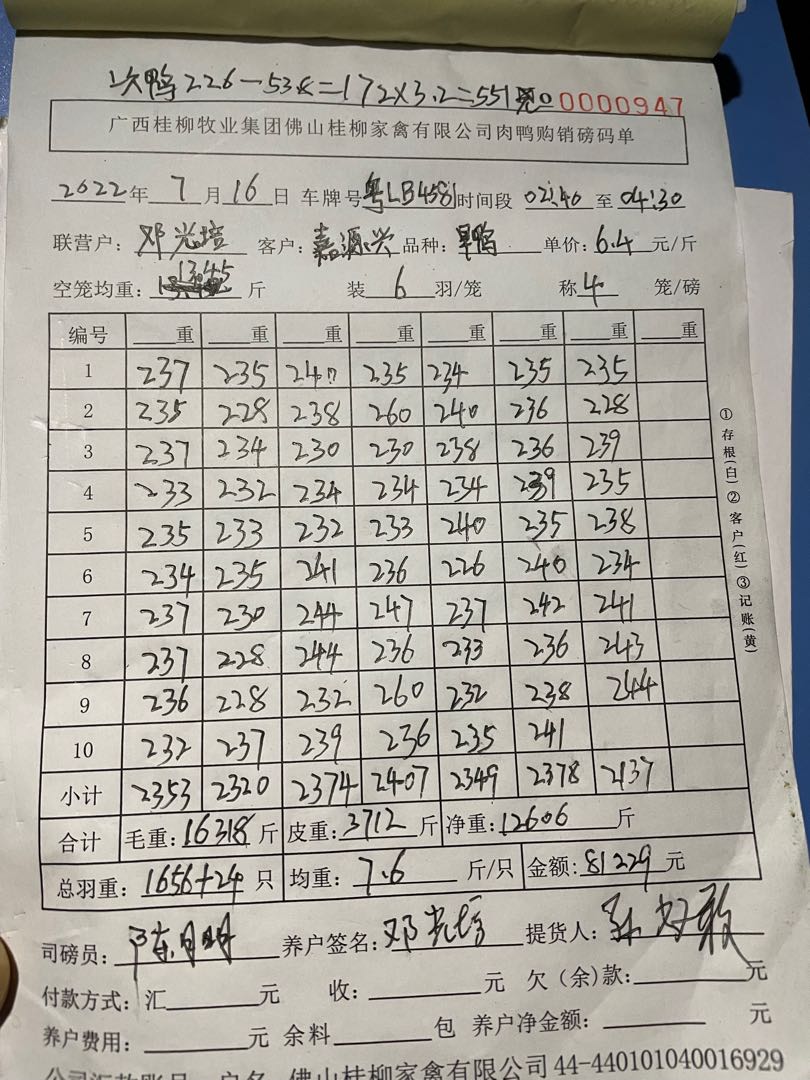 次鸭226-53.8=172×3.2=551元 0000947
广西桂柳牧业集团佛山桂柳家禽有限公司肉鸭购销磅码单
2022年 7 月 16 日 车牌号 粤LB4581 时间段 02:40 至 04:30
联营户: 邓光培 客户: 嘉源兴 品种: 旱鸭 单价: 6.4 元/斤
空笼均重: 13.45 斤 装 6 羽/笼 称 4 笼/磅
编号 重 重 重 重 重 重 重 重
1 237 235 240 235 234 235 235
2 235 228 238 260 240 236 228
3 237 234 230 230 238 236 239
4 233 232 234 234 234 239 235
5 235 233 232 233 240 235 238
6 234 235 241 236 226 240 234
7 237 230 244 247 237 242 241
8 237 228 244 236 233 236 243
9 236 228 232 260 232 238 244
10 232 237 239 236 235 241
小计 2353 2320 2374 2407 2349 2378 2137
合计 毛重: 16318 斤 皮重: 3712 斤 净重: 12606 斤
总羽重: 1656+24 只 均重: 7.6 斤/只 金额: 81229 元
司磅员: 陈月明 养户签名: 邓光培 提货人:
付款方式: 汇 元 收: 元 欠（余）款: 元
养户费用: 元 余料 包 养户净金额: 元
公司汇款账号 户名 佛山桂柳家禽有限公司 44-440101040016929
①存根(白)②客户(红)③记账(黄)